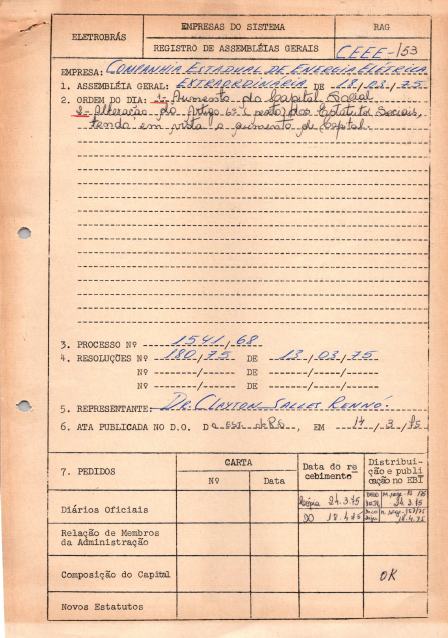 ELETROBRÁS
EMPRESAS DO SISTEMA
RAG
REGISTRO DE ASSEMBLÉIAS GERAIS
CEEE-/53
EMPRESA: COMPANHIA ESTADUAL DE ENERGIA ELÉTRICA
1. ASSEMBLÉIA GERAL: EXTRAORDINÁRIA DE 18/03/75
2. ORDEM DO DIA: 1- Aumento do Capital Social
2- Alteração do Artigo 6º (sexto) dos Estatutos Sociais,
tendo em vista o aumento de Capital.
3. PROCESSO Nº 1541/68
4. RESOLUÇÕES Nº 180/75 DE 13/03/75
Nº / DE / /
Nº / DE / /
5. REPRESENTANTE: DR. CLAYTON SALLES RENNÓ
6. ATA PUBLICADA NO D.O. Do est. , EM 17/3/75
7. PEDIDOS
CARTA
Nº
Data
Data do re
cebimento
Distribui-
ção e publi
cação no EBI
Diários Oficiais
Cópia 24.3.75
24.3.75
DO 18.4.75
18.4.75
Relação de Membros
da Administração
Composição do Capital
OK
Novos Estatutos